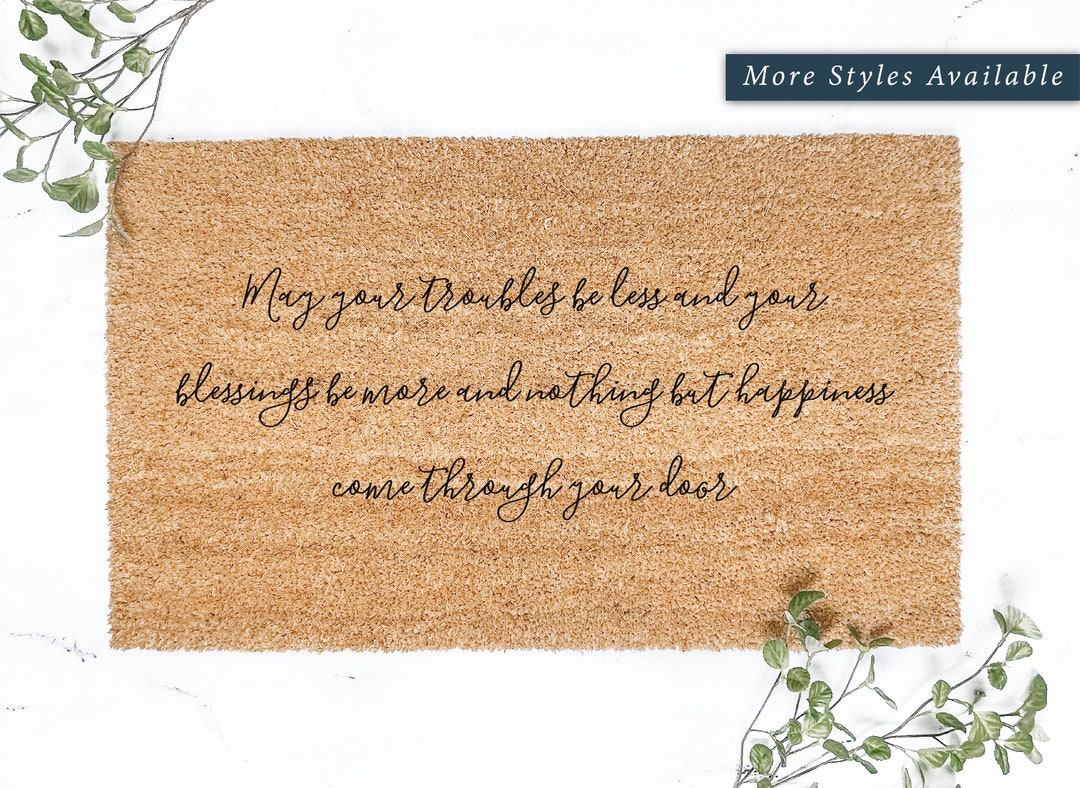 More Styles Available
May your troubles be less and your
blessings be more and nothing but happiness
come through your door